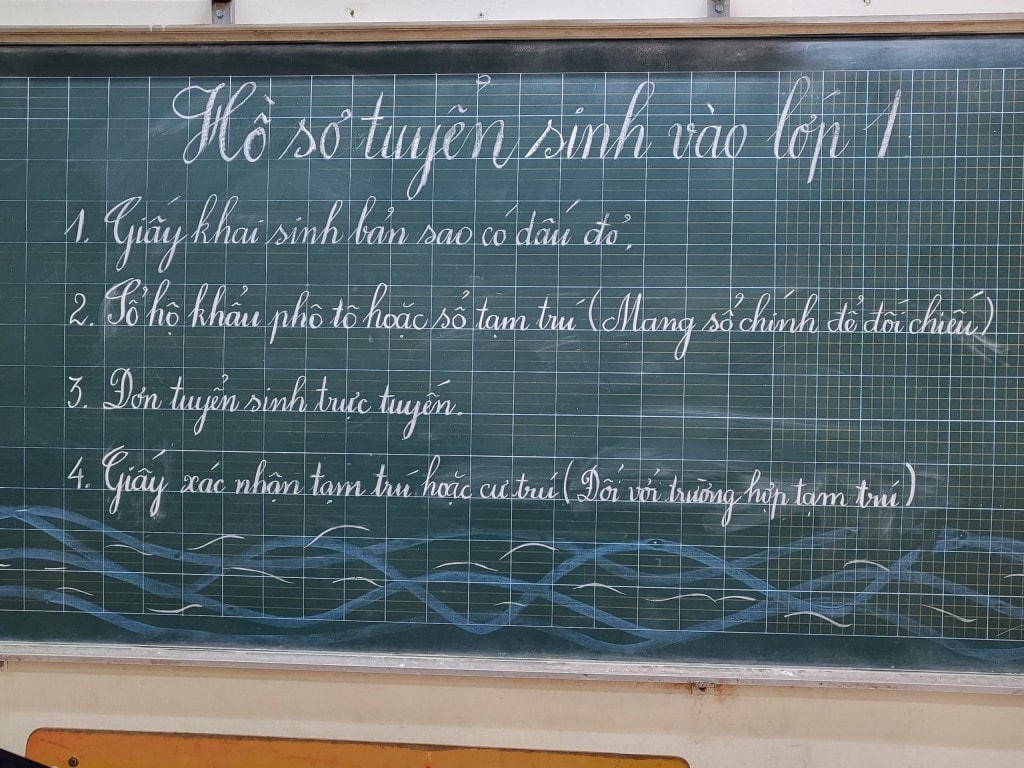 Hồ sơ tuyển sinh vào lớp 1
1. Giấy khai sinh bản sao có dấu đỏ.
2. Sổ hộ khẩu phô tô hoặc sổ tạm trú (Mang sổ chính để đối chiếu)
3. Đơn tuyển sinh trực tuyến.
4. Giấy xác nhận tạm trú hoặc cư trú (Đối với trường hợp tạm trú)